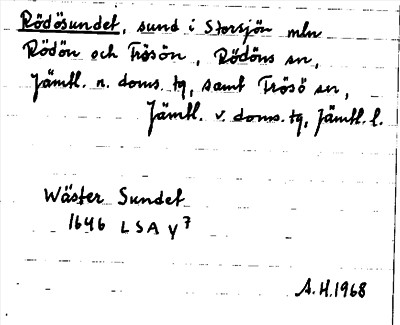 Rödösundet, sund i Storsjön mln
Rödön och Frösön, Rödöns sn,
Jämtl. n. doms. tg, samt Frösö sn,
Jämtl. v. doms. tg, Jämtl. l.
Wäster Sundet
1646 LSA Y7
A.H.1968